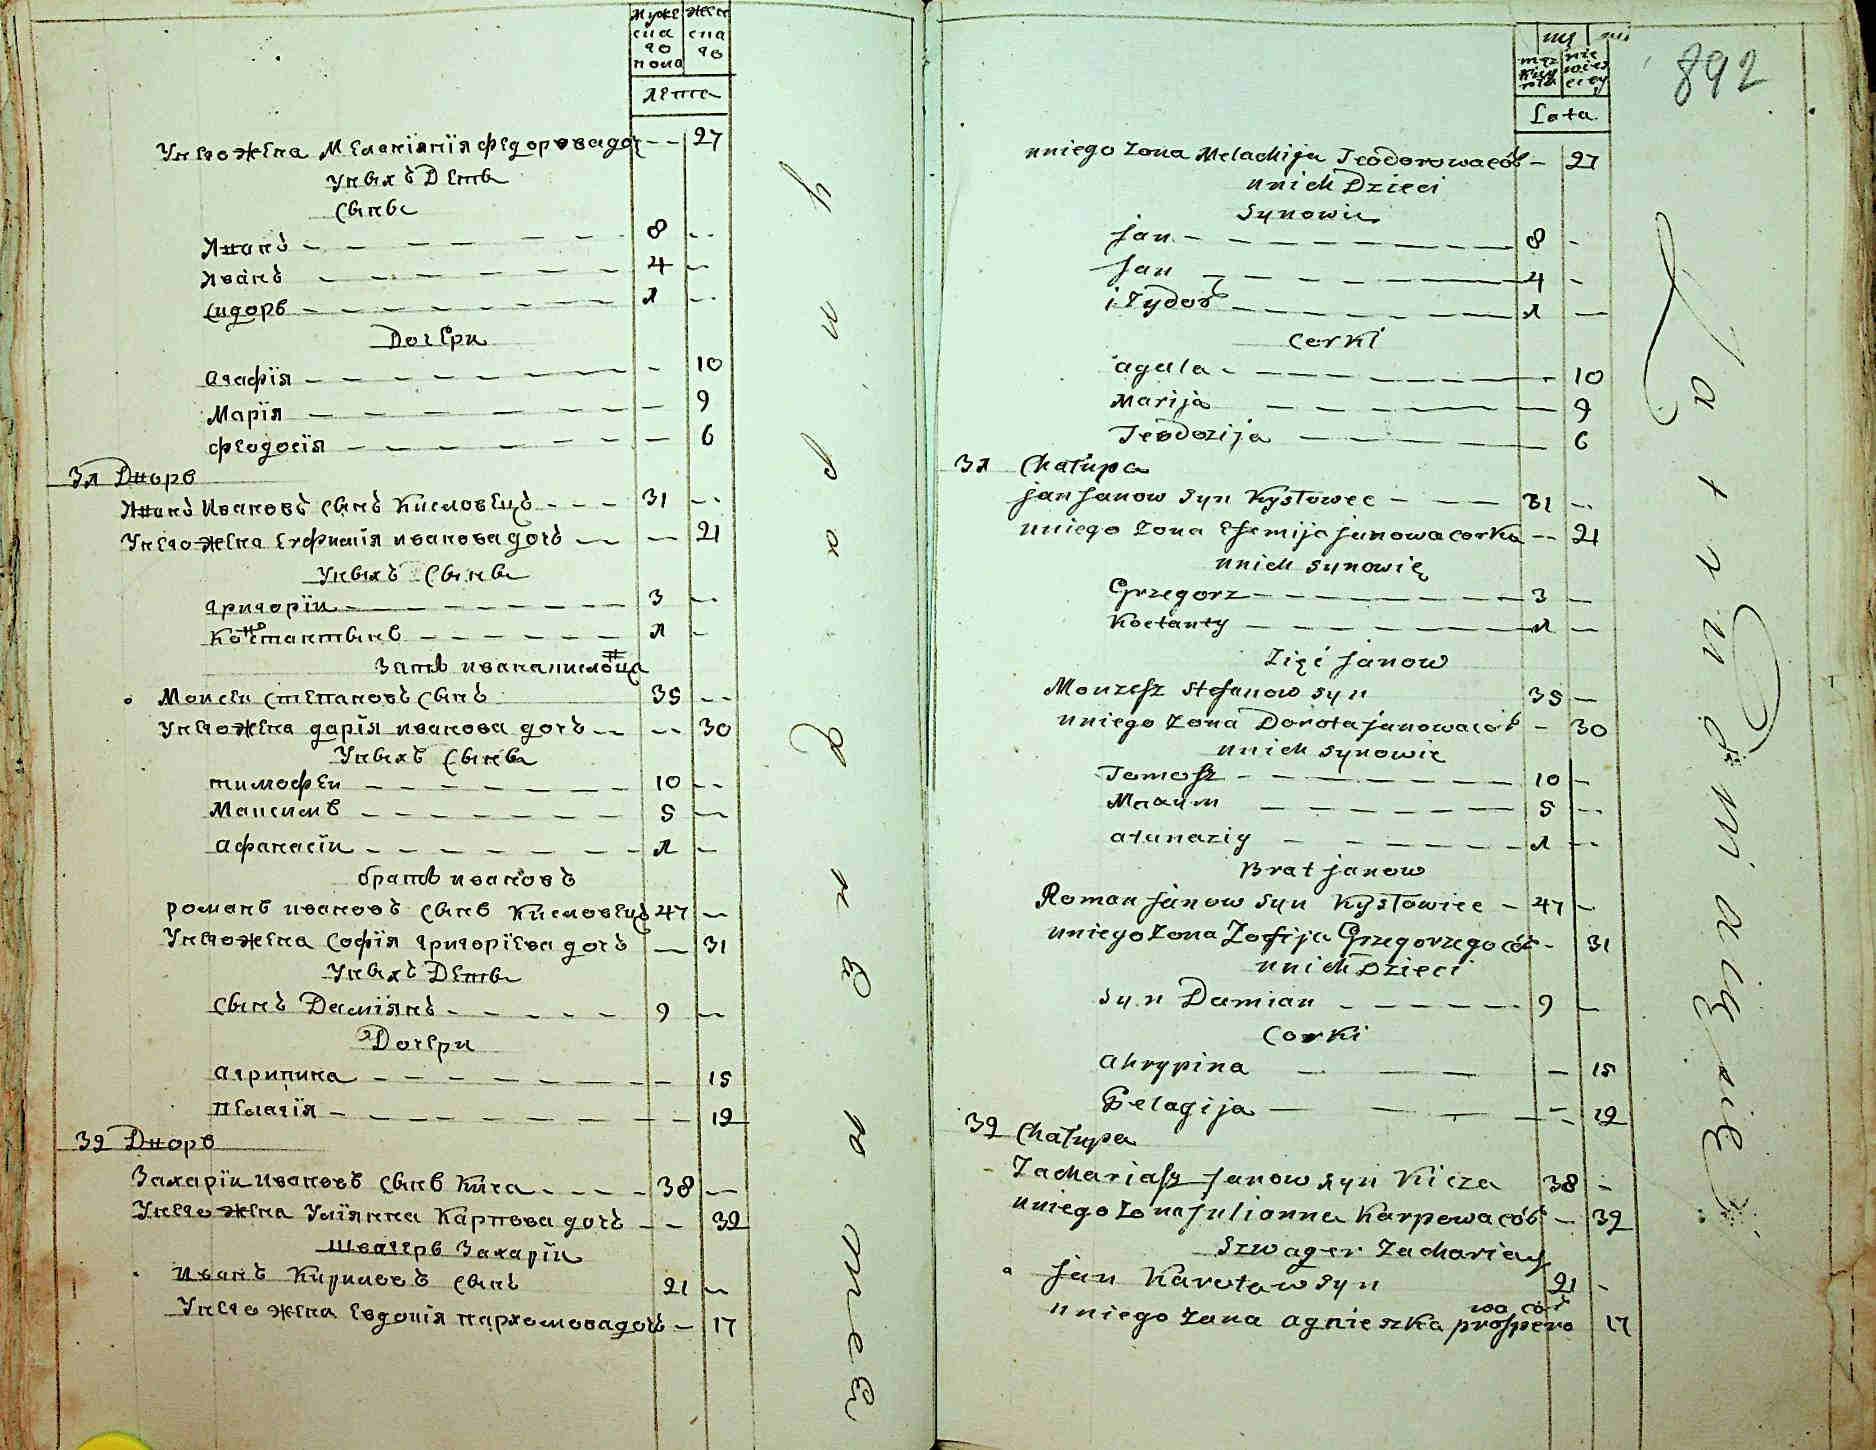 Муже
ска
го
пола
женс
ска
го
лета
Унегожена Меланїянїя федоровадоч 27
Унихъ Дети
Сыны
Яковъ 8
Иванъ 4
Сидоръ 1
Дочери
агафїя 10
Марїя 9
феодосїя 6
31 Дворъ
Иванъ Ивановъ сынъ Кисловецъ 31
Унегожена Евфимїя иванова дочь 21
Унихъ Сыны
григорїи 3
Костантынъ 1
Зять ивана
Моисеи Степановъ Сынъ 35
Унегожена дарїя иванова дочь 30
Унихъ Сыны
тимофеи 10
Максимъ 5
афанасїи 1
братъ ивановъ
романъ ивановъ сынъ Кисловецъ 47
Унегожена Софїя григорїева дочь 31
Унихъ Дети
Сынъ Дамїянъ 9
Дочери
агрипина 15
Пелагїя 12
32 Дворъ
Захарїи ивановъ сынъ Кича 38
Унего жена Улїянна Карпова дочь 32
Швагеръ Захарїи
Иванъ Кириловъ сынъ 21
Унего жена Евдокїя пархомовадочь 17
892
męz
kiey
nie
wies
ciey
Lata
uniego Zona Melachija Teodorowacór 27
unich Dzieci
Synowie
Jan 8
Jan 4
iZydor 1
Corki
agata 10
Marija 9
Teodozija 6
31 Chałupa
Jan Janow Syn Kysłowiec 31
uniego Zona Efemija Janowa corka 21
unich Synowie
Grzegorz 3
Kostanty 1
Zięć Janow
Mouzesz Stefanow Syn 35
uniego Zona Dorota Janowacór 30
unich Synowie
Tomasz 10
Maxim 5
atanaziy 1
Brat Janow
Roman Janow Syn Kysłowiec 47
uniego Zona Zofija Grzegorzego cór 31
unich Dzieci
Syn Damian 9
Corki
ahrypina 15
Pelagija 12
32 Chałupa
Zachariasz Janow syn Kicza 38
uniego Zona Julianna Karpowa cór 32
Szwager Zachariasz
Jan Karołow Syn 21
uniego Zona agnieszka prospero
wa cór 17